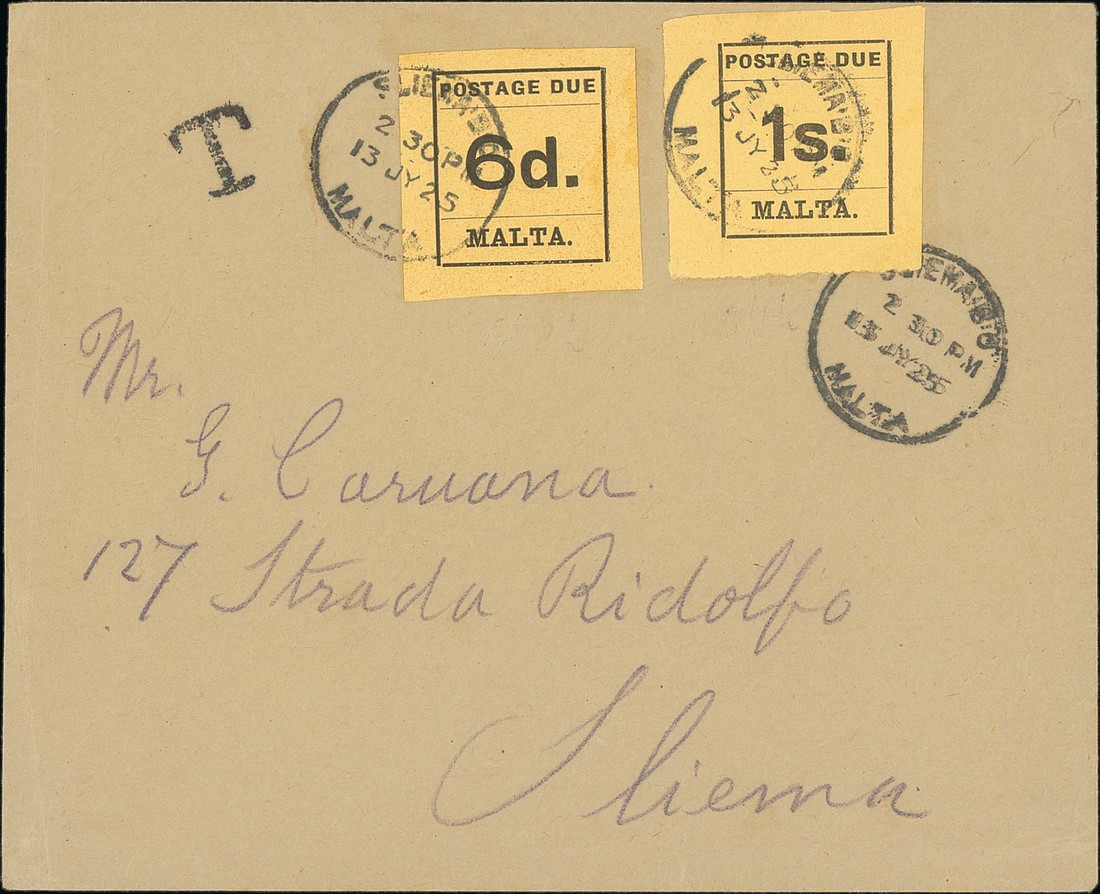 T
POSTAGE DUE
6d.
MALTA.
POSTAGE DUE
1s.
MALTA.
SLIEMA
2 30 PM
13 JY 25
MALTA
SLIEMA
13 JY 25
MALTA
SLIEMA
2 30 PM
13 JY 25
MALTA
Mr.
G. Caruana
127 Strada Ridolfo
Sliema